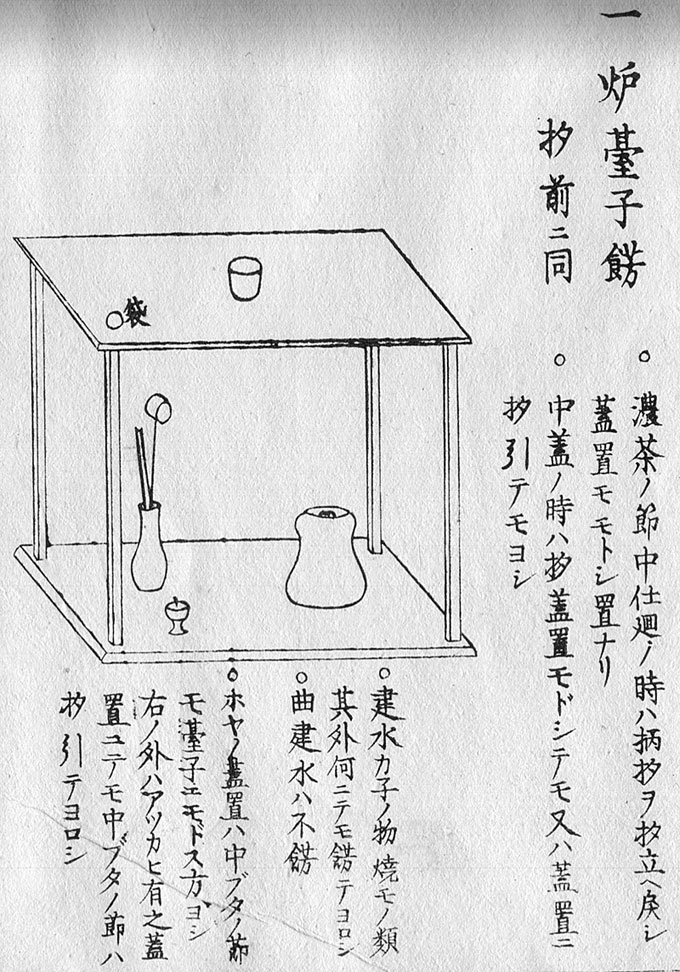 一 炉臺子餝
杓前ニ同
○濃茶ノ節中仕廻ノ時ハ柄杓ヲ杓立ヘ戻シ
蓋置モモトシ置ナリ
○中蓋ノ時ハ杓蓋置モドシテモ又ハ蓋置ニ
杓引テモヨシ
袋
○建水カ子ノ物焼モノ類
其外何ニテモ餝テヨロシ
○曲建水ハ不餝
○ホヤノ蓋置ハ中ブタノ節
モ臺子エモドス方ヨシ
右ノ外ハアツカヒ有之蓋
置ニテモ中ブタノ節ハ
杓引テヨロシ